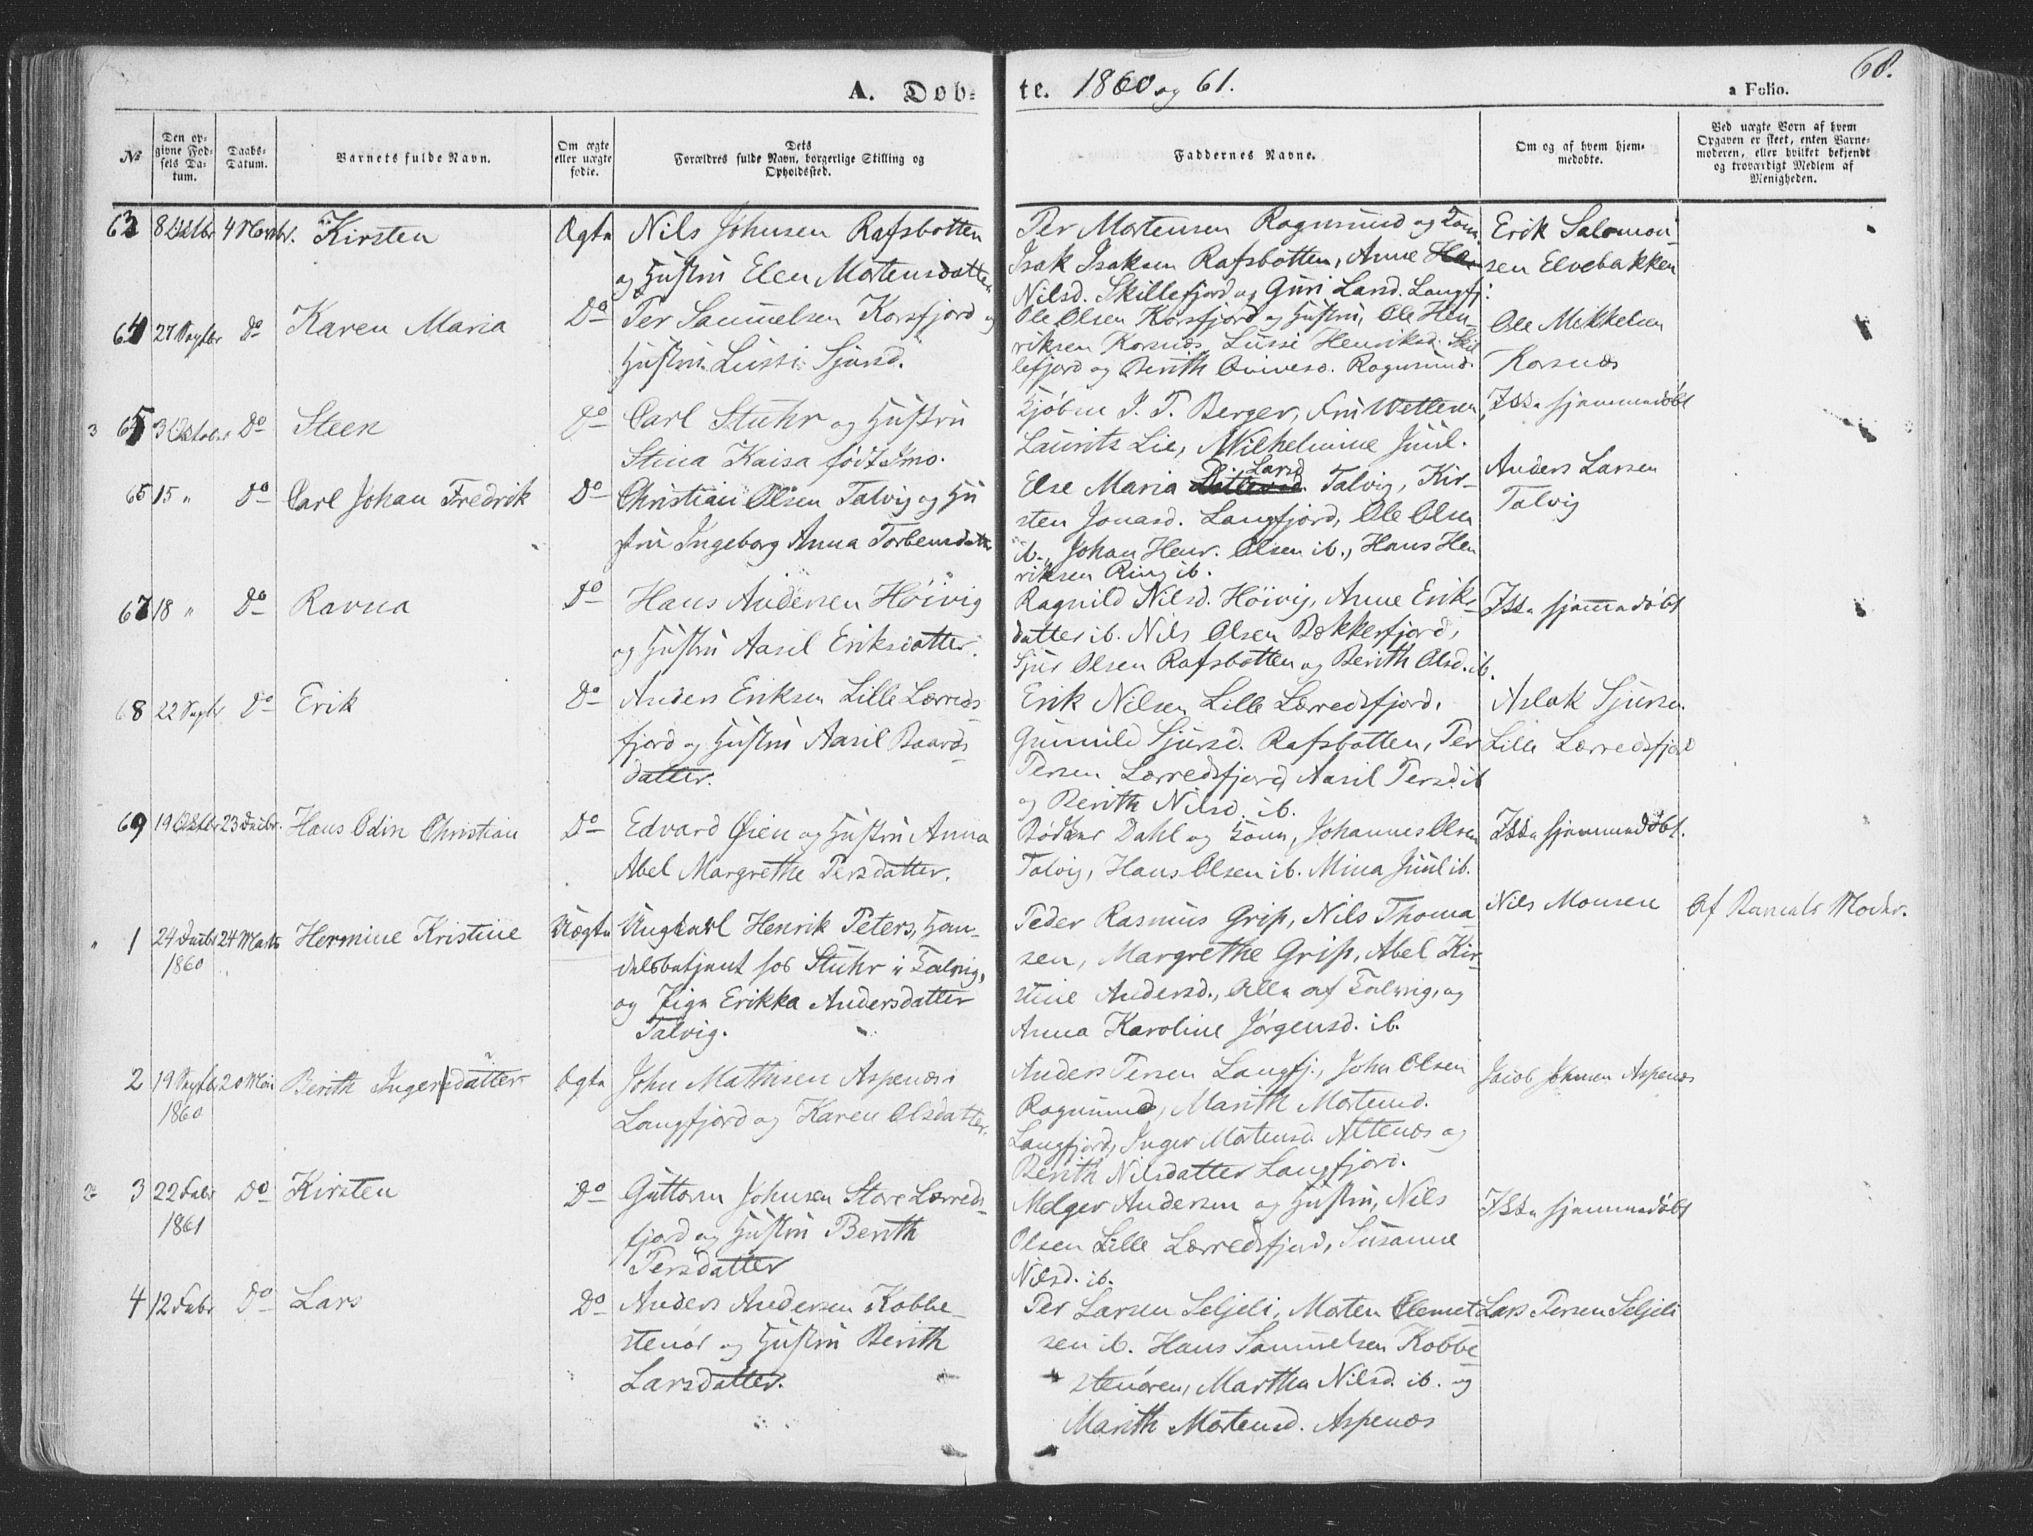 68.
A. Døb-
te. 1860 og 61.
a Folio.
No
Den op-
givne Fød-
sels Da-
tum.
Daabs-
Datum.
Barnets fulde Navn.
Om ægte
eller uægte
fødte.
Dets
Forældres fulde Navn, borgerlige Stilling og
Opholdssted.
Faddernes Navne.
Om og af hvem hjem-
medøbte.
Ved uægte Børn af hvem
Opgaven er skeet, enten Barne-
moderen, eller hvilket bekjendt
og troværdigt Medlem af
Menigheden.
63 8 Oktbr 4 Novbr. Kirsten Ægte Nils Johnsen Rafsbotten
og Hustru Elen Mortensdatter
Per Mortensen Rognsund og Kone
Isak Isaksen Rafsbotten, Anne
Nilsd. Skillefjord og Guri Larsd. Langfj.
Erik Salomon-
sen Elvebakken
64 27 Septbr Do Karen Maria Do Per Samuelsen Korsfjord og
Hustru Lussi Sjursd.
Ole Olsen Korsfjord og Hustru, Ole Hen-
riksen Korsnæs, Lussi Henriksd. Skil-
lefjord og Berith Rognsund.
Ole Mikkelsen
Korsnæs
3 65 3 Oktober Do Steen Do Carl Stuhr og Hustru
Stina Kaisa født Imo.
Kjøbm J. T. Berger, Fru Wetlesen,
Laurits Lie, Wilhelmine Juul.
Ikke hjemmedøbt
65 15 " Do Carl Johan Fredrik Do Christian Olsen Talvig og Hu
stru Ingeborg Anna Torbensdatter
Else Maria Larsd Talvig, Kir-
sten Jonasd. Langfjord, Ole Olsen
ib., Johan Henr. Olsen ib., Hans Hen
riksen Ring ib.
Anders Larsen
Talvig
67 18 " Do Ravna Do Hans Andersen Höivig
og Hustru Aasil Eriksdatter.
Ragnild Nilsd. Höivig, Anne Eriks-
datter ib. Nils Olsen Bekkerfjord,
Sjur Olsen Rafsbotten og Berith Olsd. ib.
Ikke hjemmedøbt
68 22 Septbr Do Erik Do Anders Eriksen Lille Lerreds-
fjord og Hustru Aasil Baards-
datter.
Erik Nilsen Lille Lerredsfjord,
Gunnild Sjursd. Rafsbotten, Per
Persen Lerredsfjord, Aasil Persd. ib
og Berith Nilsd. ib.
Aslak Sjursen
Lille Lerredsfjord
69 19 Oktbr 23 Decbr. Hans Odin Christian Do Edvard Øien og Hustru Anna
Abel Margrethe Persdatter.
Bødker Dahl og Kone, Johannes Olsen
Talvig, Hans Olsen ib. Mina Juul ib.
Ikke hjemmedøbt.
1 24 Decbr 24 Marts Hermine Kristine Uægte Ungkarl Henrik Peters, Han-
1860
delsbetjent hos Stuhr i Talvig,
og Pige Erikka Andersdatter
Talvig.
Peder Rasmus Grip, Nils Thoma
sen, Margrethe Grip, Abel Kir-
stine Andersd., Alle af Talvig, og
Anna Karoline Jörgensd. ib.
Nils Monsen
Af Barnets Moder.
2 19 Septbr 20 Mai Berith Ingersdatter Ægte John Mathisen Aspenæs i
1860
Langfjord og Karen Olsdatter.
Anders Persen Langfj., John Olsen
Rognsund, Marith Mortensd.
Langfjord, Inger Mortensd. Altenæs og
Berith Nilsdatter Langfjord.
Jacob Johnsen Aspenæs
2 3 22 Febr Do Kirsten Do Guttorm Johnsen Store Lerreds-
1861
fjord og Hustru Berith
Persdatter
Melger Andersen og Hustru, Nils
Olsen Lille Lerredsfjord, Susanne
Nilsd. ib.
Ikke hjemmedøbt
4 12 Febr Do Lars Do Anders Andersen Kobbe-
stenør og Hustru Berith
Larsdatter.
Per Larsen Seljeli, Morten Clemet-
sen ib. Hans Samuelsen Kobbe
stenören, Marthe Nilsd. ib. og
Marith Mortensd. Aspenæs
Lars Persen Seljeli